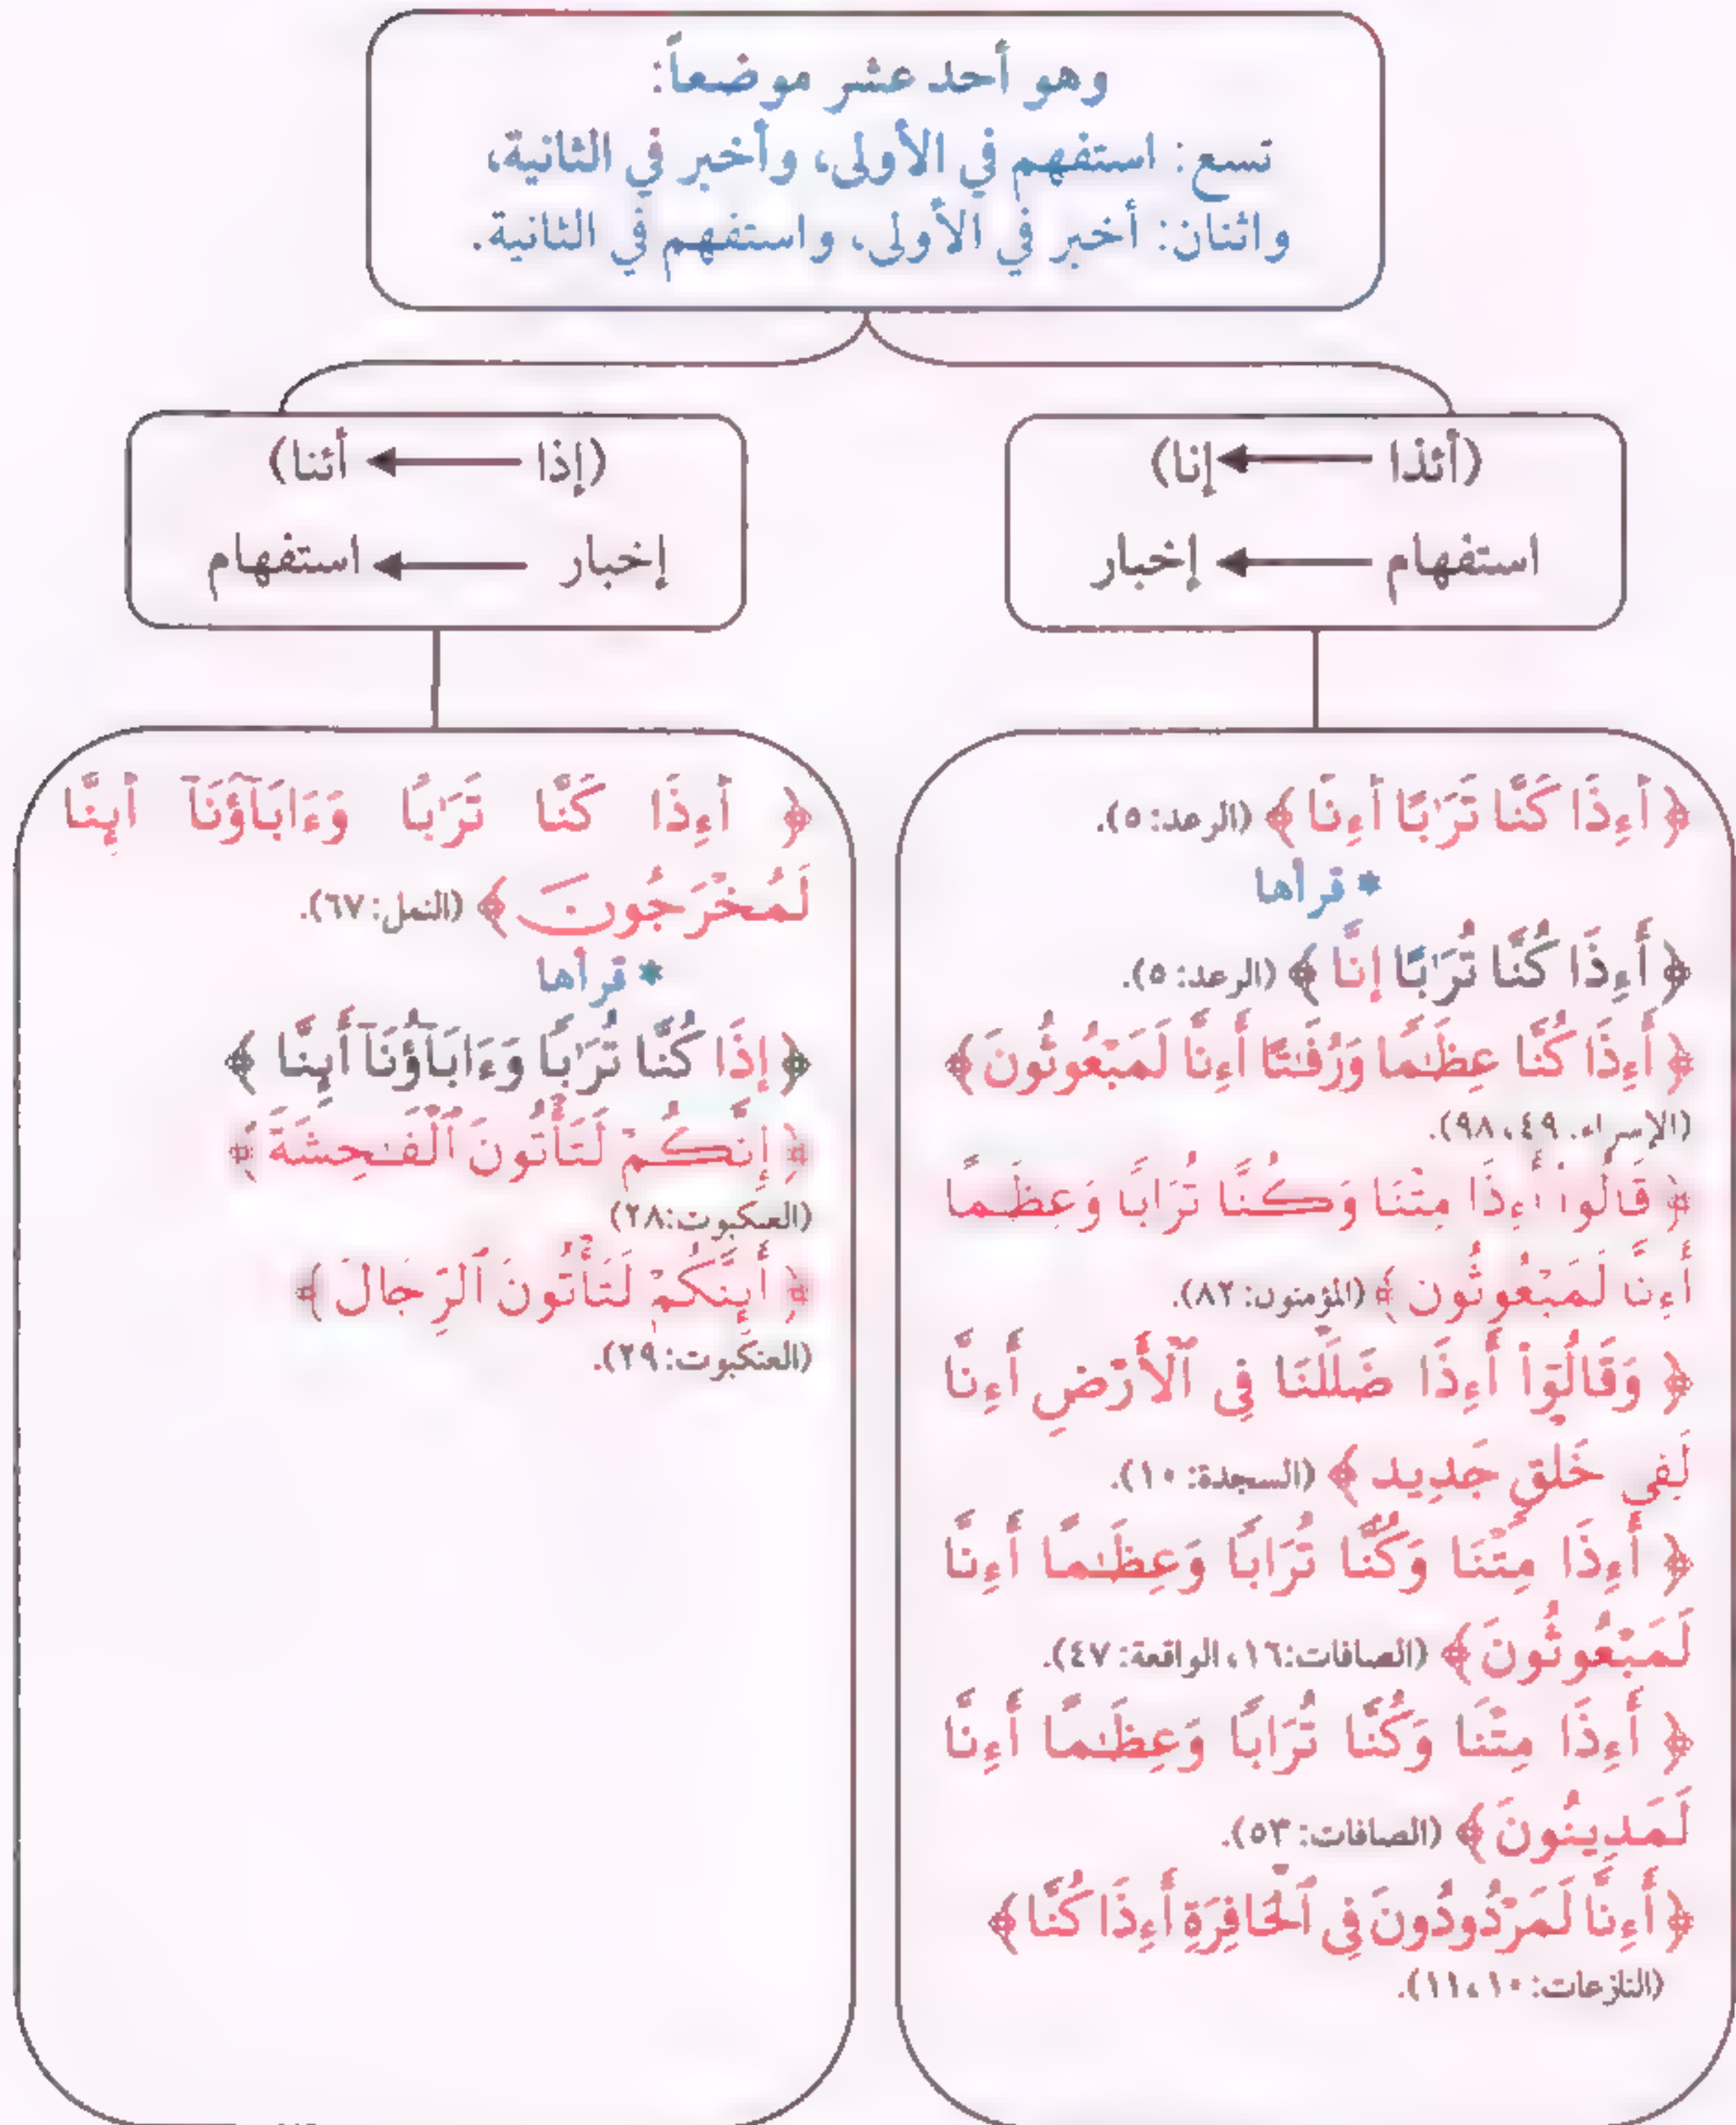 وهو أحد عشر موضعاً:
تسع: استفهم في الأولى، وأخبر في الثانية،
واثنان: أخبر في الأولى، واستفهم في الثانية.
(أئذا ← إنا)
استفهام ← إخبار
﴿ أَءِذَا كُنَّا تُرَٰبًا أَءِنَّا ﴾ (الرعد: ٥).
* قرأها
﴿ أَءِذَا كُنَّا تُرَٰبًا إِنَّا ﴾ (الرعد: ٥).
﴿ أَءِذَا كُنَّا عِظَٰمًا وَرُفَٰتًا أَءِنَّا لَمَبْعُوثُونَ ﴾
(الإسراء: ٤٩، ٩٨).
﴿ قَالُوٓا۟ أَءِذَا مِتْنَا وَكُنَّا تُرَابًا وَعِظَٰمًا
أَءِنَّا لَمَبْعُوثُونَ ﴾ (المؤمنون: ٨٢).
﴿ وَقَالُوٓا۟ أَءِذَا ضَلَلْنَا فِى ٱلْأَرْضِ أَءِنَّا
لَفِى خَلْقٍ جَدِيد ﴾ (السجدة: ١٠).
﴿ أَءِذَا مِتْنَا وَكُنَّا تُرَابًا وَعِظَٰمًا أَءِنَّا
لَمَبْعُوثُونَ ﴾ (الصافات: ١٦، الواقعة: ٤٧).
﴿ أَءِذَا مِتْنَا وَكُنَّا تُرَابًا وَعِظَٰمًا أَءِنَّا
لَمَدِينُونَ ﴾ (الصافات: ٥٣).
﴿ أَءِنَّا لَمَرْدُودُونَ فِى ٱلْحَافِرَةِ أَءِذَا كُنَّا ﴾
(النازعات: ١٠، ١١).
(إذا ← أئنا)
إخبار ← استفهام
﴿ أَءِذَا كُنَّا تُرَٰبًا وَءَابَآؤُنَآ أَئِنَّا
لَمُخْرَجُونَ ﴾ (النمل: ٦٧).
* قرأها
﴿ إِذَا كُنَّا تُرَٰبًا وَءَابَآؤُنَآ أَئِنَّا ﴾
﴿ إِنَّكُمْ لَتَأْتُونَ ٱلْفَٰحِشَةَ ﴾
(العنكبوت: ٢٨)
﴿ أَئِنَّكُمْ لَتَأْتُونَ ٱلرِّجَالَ ﴾
(العنكبوت: ٢٩).